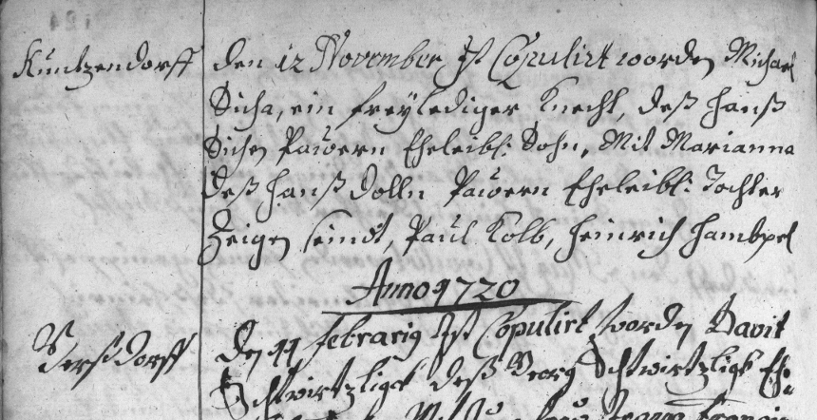 Kuntzendorff
den 12 November Ist Copulirt worden Michael
Sicha, ein freÿlediger Knecht, deß Hanß
Sichen Pauern Eheleibl: Sohn, Mit Marianna
deß Hanß Dolln Pauern Eheleibl: Tochter
Zeigen seindt, Paul Kolb, Heinrich
Anno 1720
Den 11 Febrarig Ist Copulirt worden Davit
deß Georg